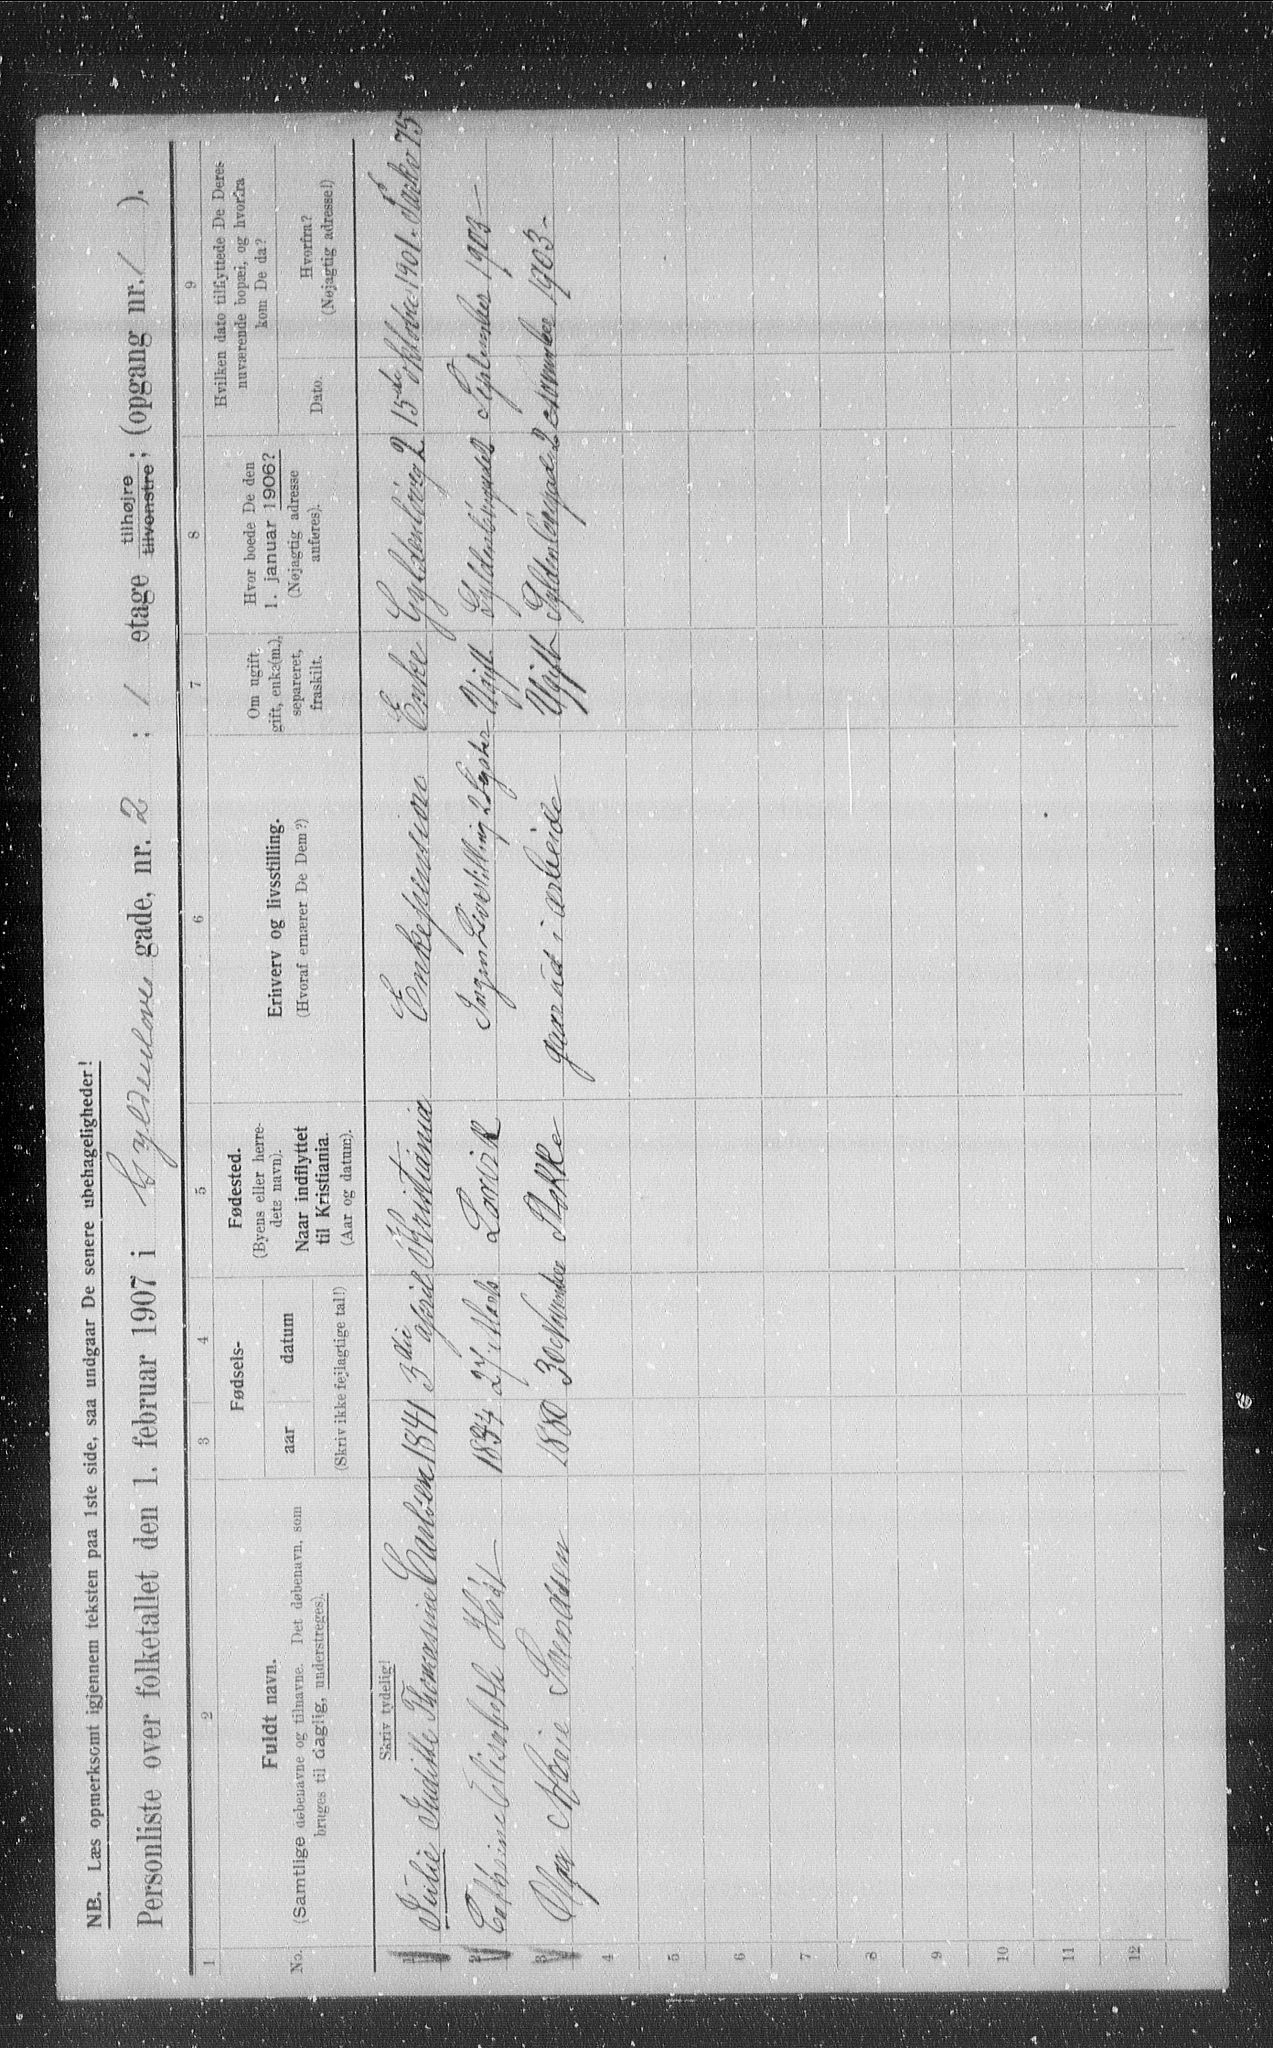 NB. Læs opmerksomt igjennem teksten paa 1ste side, saa undgaar De senere ubehageligheder!
Personliste over folketallet den 1. februar 1907 i Gyldenløves gade, nr. 2 ; 1 etage tilhøjre tilvenstre; (opgang nr. 1 ).
1 2 3 4 5 6 7 8 9
No.
Fuldt navn.
(Samtlige døbenavne og tilnavne. Det døbenavn, som
bruges til daglig, understreges).
Fødsels-
aar datum
(Skriv ikke fejlagtige tal!)
Fødested.
(Byens eller herre-
dets navn).
Naar indflyttet
til Kristiania.
(Aar og datum).
Erhverv og livsstilling.
(Hvoraf ernærer De Dem?)
Om ugift,
gift, enke(m.),
separeret,
fraskilt.
Hvor boede De den
1. januar 1906?
(Nøjagtig adresse
anføres).
Hvilken dato tilflyttede De Deres
nuværende bopæl, og hvorfra
kom De da?
Dato.
Hvorfra?
(Nøjagtig adresse!)
Skriv tydelig!
1 Julie Juditte Thomasine Carlsen 1841 3die april Kristiania Enkepension Enke Gyldenløvsg 2 15de oktober 1901. Parkv 75
2 Cathrine Elisabeth Høst 27 Marts Larvik Ingen Livstilling Ugift September 1903
3 Olga Marie Svendsen 1880 30 November Stokke gaar ud i arbeide Ugift November 1903
4
5
6
7
8
9
10
11
12